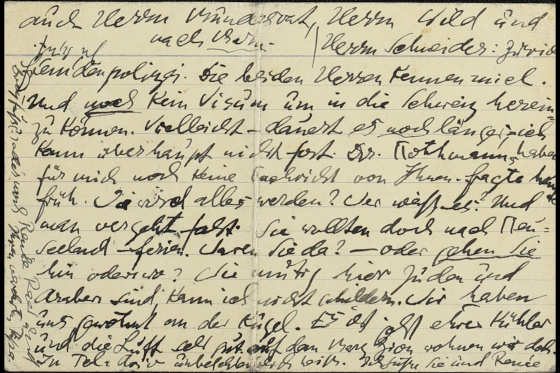 auch Herrn Bundesrat, Herrn Wild und
nach Bern. Herrn Schneider: Zürich
Fremdenpolizei. Die beiden Herren kennen mich.
Und noch kein Visum um in die Schweiz herein
zu können. Vielleicht – dauert es noch länger, ich
kann überhaupt nicht fort. Dr. Rothmann, haben
für mich noch keine Nachricht von Ihnen – sagte heute
früh. Wie wird alles werden? Wer weiß es? Und
man vergeht fast. Sie wollten doch nach Neu-
seeland – Ferien. Waren Sie da? – oder gehen Sie
hin oder wie? Wie mutig hier Juden und
Araber sind kann ich nicht schildern. Wir haben
uns gewöhnt an der Kugel. Es ist jetzt eher kühler
und die Luft sehr gut auf dem Berg Zion wohnen wir doch
in Tel-Aviv unbeschreiblich heiß. Grüßen Sie und Renée